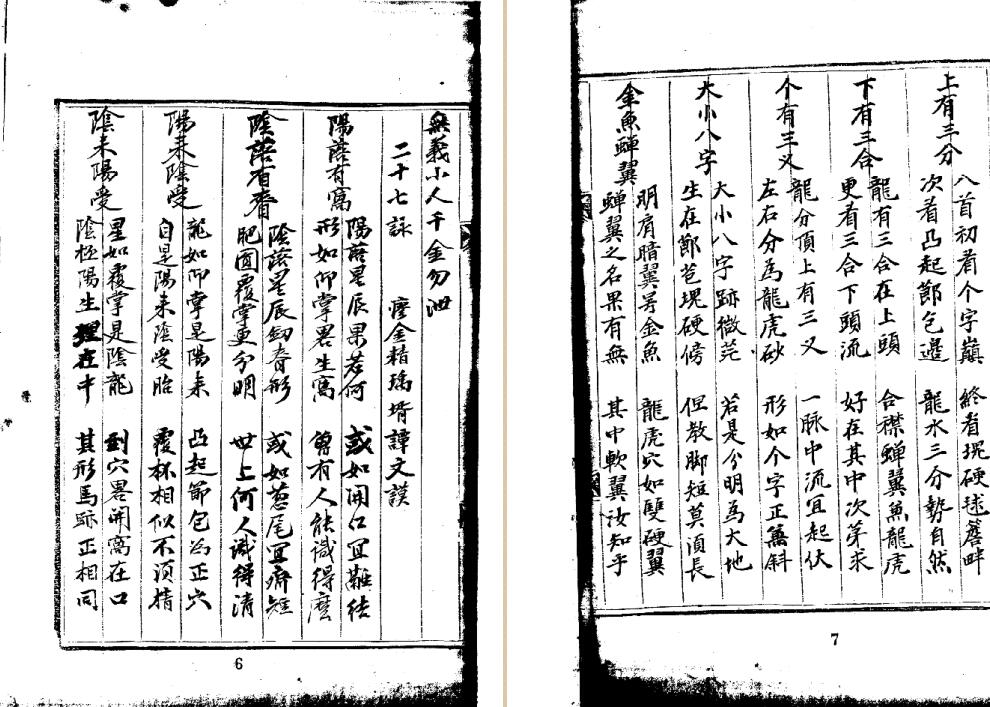 無義小人千金勿泄
二十七詠　瘞金精璚壻譚文謨
陽落有窩
陽落星辰果若何　或如開口宜難結
形如仰掌畧生窩　曾有人能識得麼
陰落有脊
陰落星辰劔脊形　或如葱尾宜齊短
肥圓覆掌更分明　世上何人識得清
陽来陰受
龍如仰掌是陽来　凸起節包為正穴
自是陽来陰受胎　覆杯相似不須猜
陰来陽受
星如覆掌是陰龍　到穴畧開窩在口
陰極陽生理在中　其形馬跡正相同
6
上有三分
八首初看个字巔　終看塊硬毬簷畔
次看凸起節包邊　龍水三分勢自然
下有三合
龍有三合在上頭　合襟蟬翼魚龍虎
更看三合下頭流　好在其中次第求
个有三乂
龍分頂上有三乂　一脉中流宜起伏
左右分為龍虎砂　形如个字正無斜
大小八字
大小八字跡微茫　若是分明為大地
生在節苞塊硬傍　但教脚短莫須長
金魚蟬翼
明肩暗翼号金魚　龍虎穴如雙硬翼
蟬翼之名果有無　其中軟翼汝知乎
7